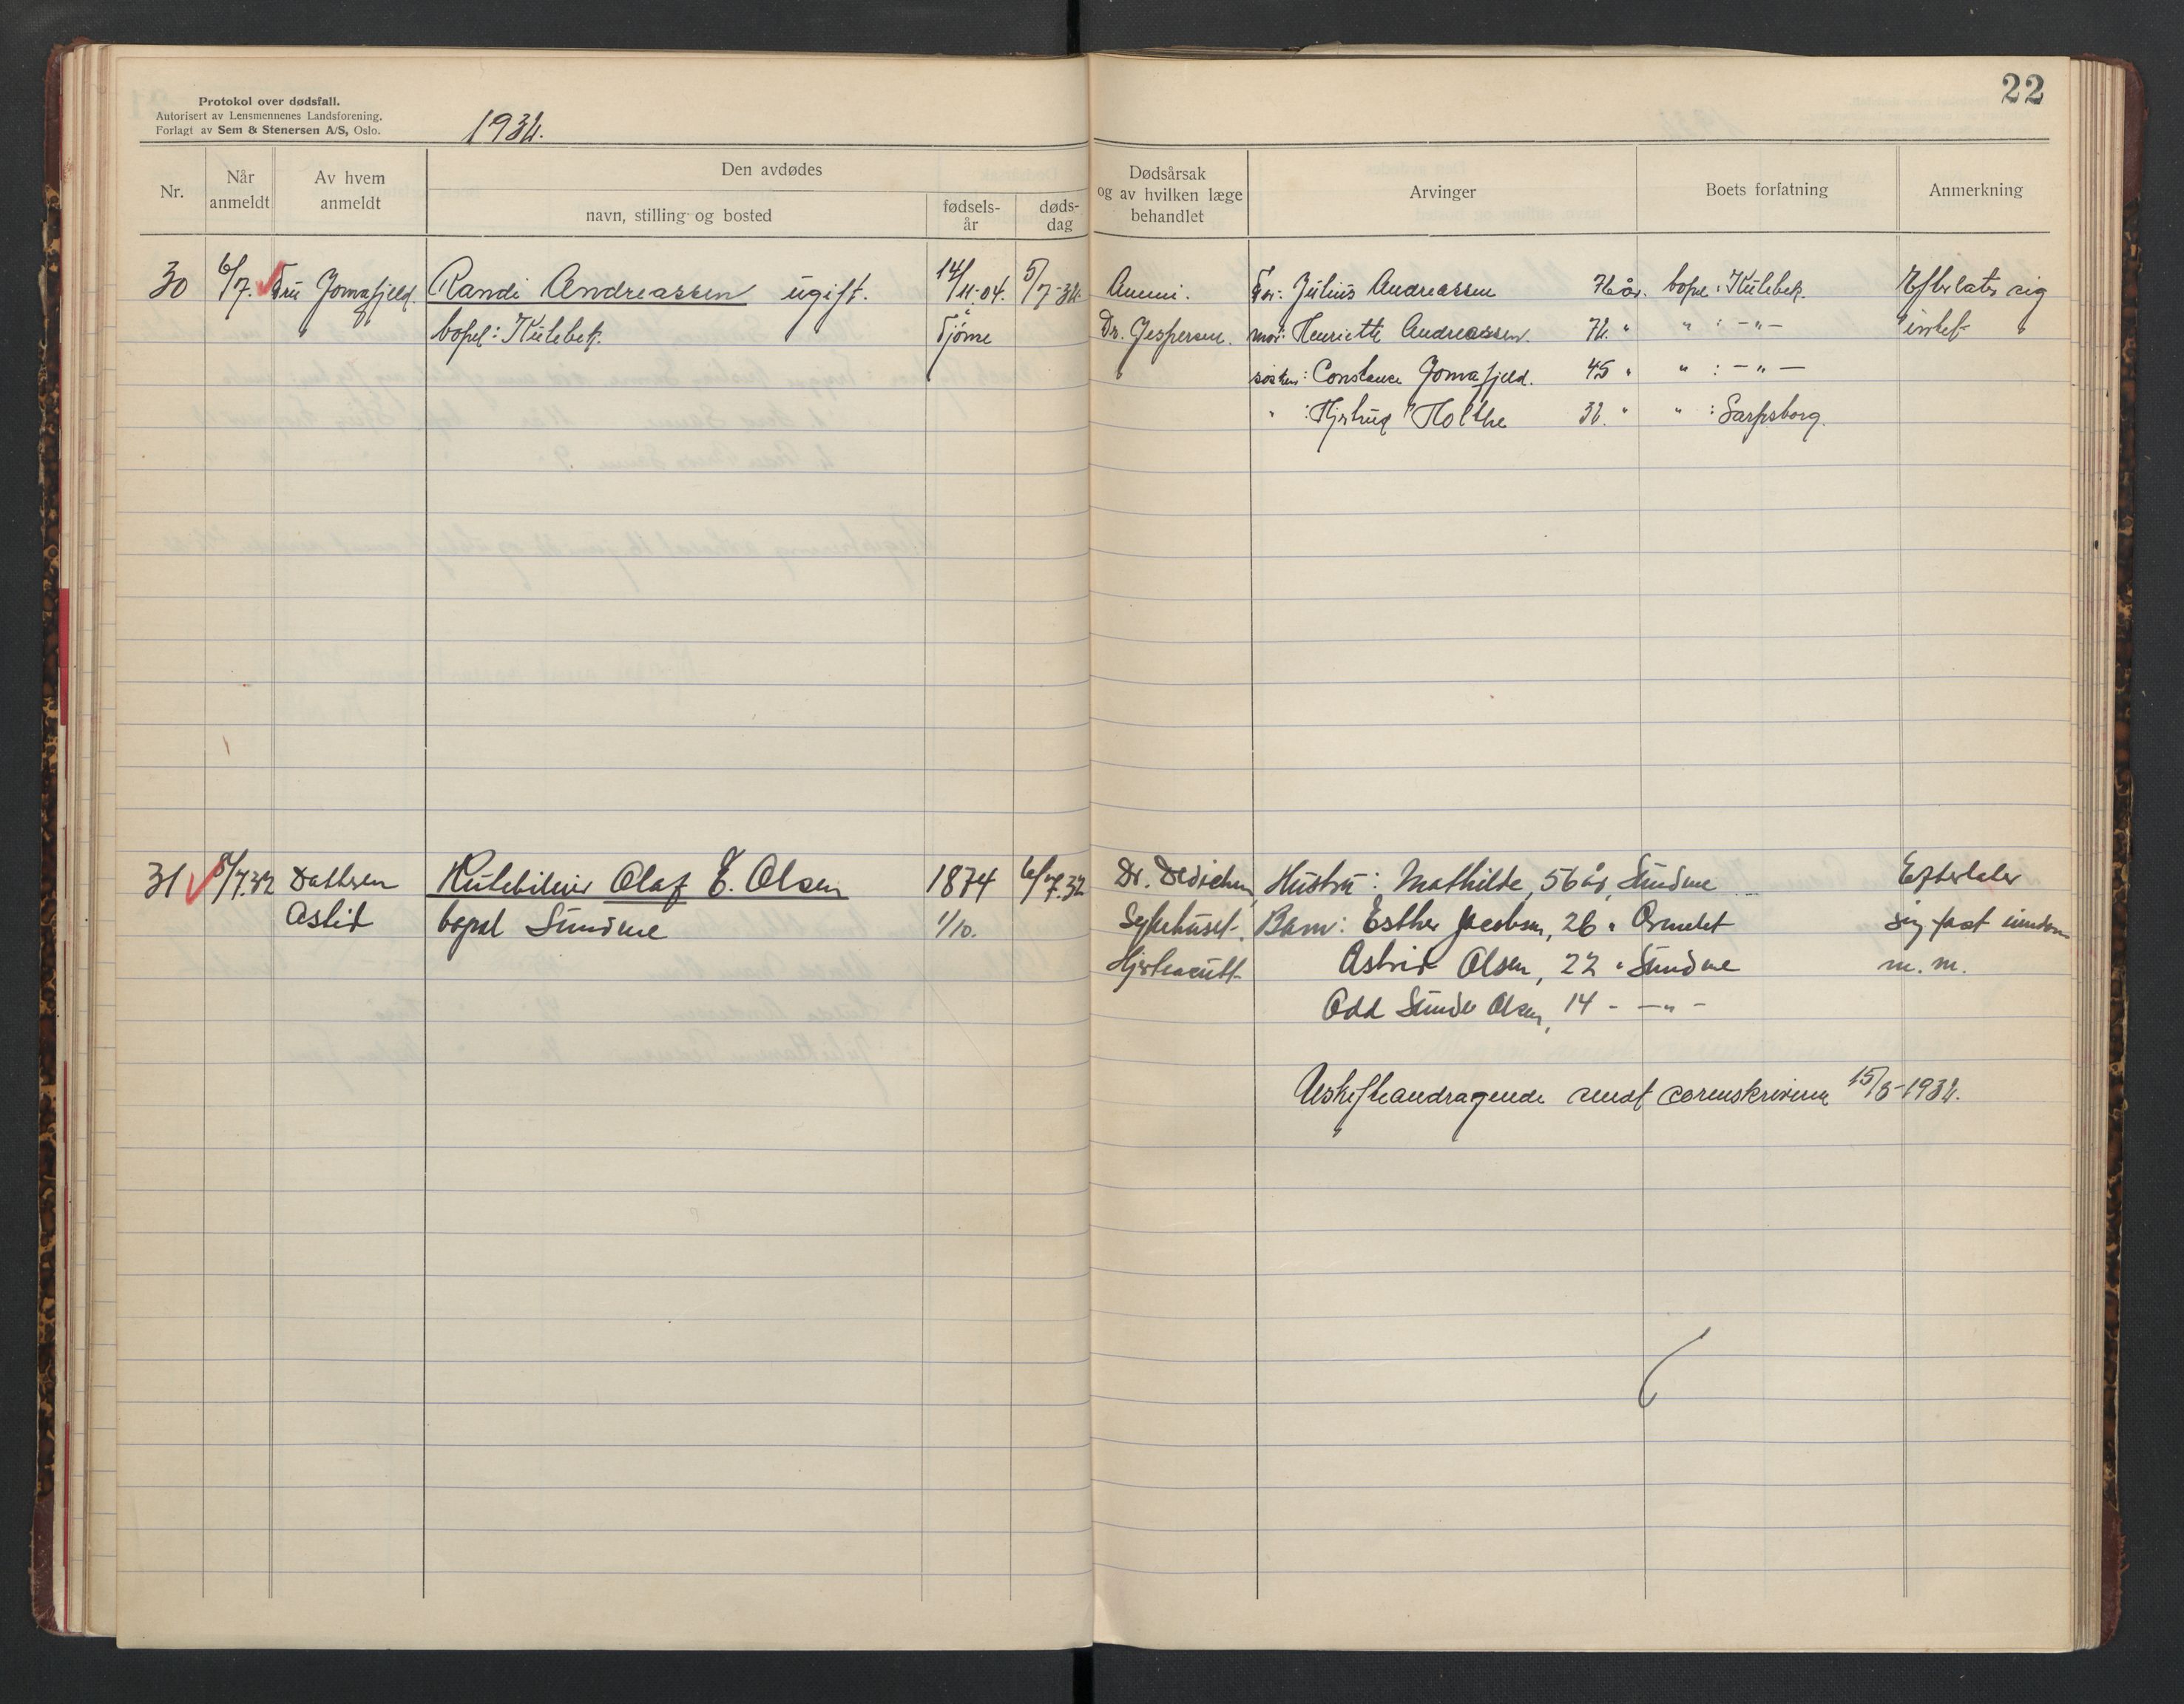 22
Protokol over dødsfall.
Autorisert av Lensmennenes Landsforening.
Forlagt av Sem & Stenersen A/S, Oslo.
1932.
Nr.
Når anmeldt
Av hvem anmeldt
Den avdødes
navn, stilling og bosted
fødsels-år
døds-dag
Dødsårsak og av hvilken læge behandlet
Arvinger
Boets forfatning
Anmerkning
30 6/7. Fru Jomafjeld. Randi Andreassen ugift. 14/11-04. 5/7-32. Anemi. Far: Julius Andreassen 76 år. bopel: Kulebek. Efterlater sig
bopel: Kulebek. Tjøme Dr. Jespersen. mor: Henriette Andreassen. 72 " " : - " - intet
søsken: Constance Jomafjeld. 45 " " : - " -
" : Hjertrud Holthe 32. " " : Sarpsborg.
31 8/7.32 Datteren Olaf E. Olsen 1874 6/7.32 Dr. Dedichen, Hustru: Mathilde, 56 år, Sundene Efterlater
Astrid bopel Sundene 1/10. Sykehuset. Barn: Esther Jacobsen, 26 " Ormelet sig fast eiendom
Astrid Olsen, 22 " Sundene m. m.
Odd Sunde Olsen, 14 - - " -
Uskifteandragende sendt sorenskriveren 15/8-1932.